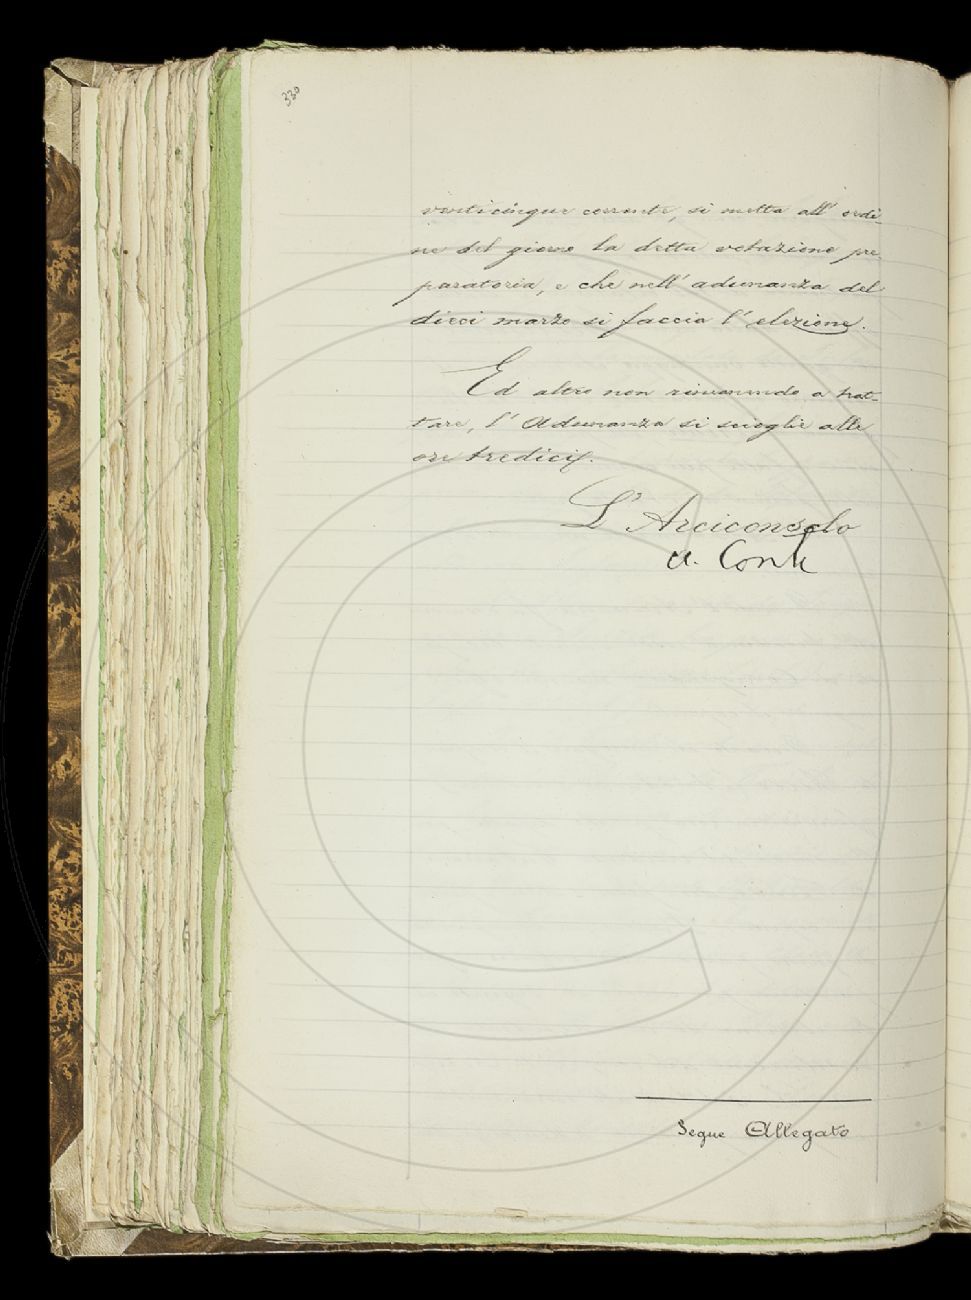 330
venticinque corrente, si metta all' ordi-
ne del giorno la detta votazione pre-
paratoria, e che nell' adunanza del
dieci marzo si faccia l' elezione.
Ed altro non rimanendo a trat-
tare, l' Adunanza si scioglie alle
ore tredici.
L' Arciconsolo
A. Conti
Segue Allegato